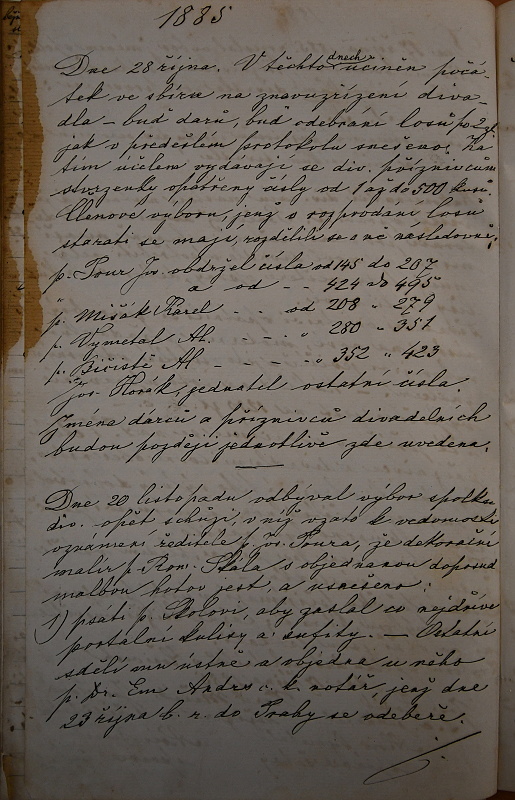 1885
Dne 28 října. V těchto dnech učiněn počá-
tek ve sbírce na znovuzřízení diva-
dla – buď darů, buď odebrání losů po 2 zl
jak v předešlém protokolu snešeno. Za
tím účelem vydávají se div. příznivcům
stvrzenky opatřeny čísly od 1 až do 500 kusů.
Členové výboru, jenž s rozprodání losů
starati se mají, rozdělili se o ně následovně:
p. Pour Jos. obdržel čísla od 145 do 207
" a od - - 424 do 495
p. Mišák Karel - - od 208 " 279
p. Vymetal Al. - - - " 280 " 351
p. Čičistě Al - - - " 352 " 423
Jos. Horák, jednatel ostatní čísla.
Jména dárců a příznivců divadelních
budou později jednotlivě zde uvedena.
Dne 20 listopadu, odbýval výbor spolku
div. opět schůzi, v níž vzato k vědomosti
oznámení ředitele p. Jos. Poura, že dekorační
malíř p. Rom. Skála s objednanou doposud
malbou hotov jest, a usnešeno:
1) psáti p. Skálovi, aby zaslal co nejdříve
portální kulisy a sufity. — Ostatní
sdělí mu ústně a objedná u něho
p. Dr. Em. Andrs c. k. notář, jenž dne
23 října b. r. do Prahy se odebeře.